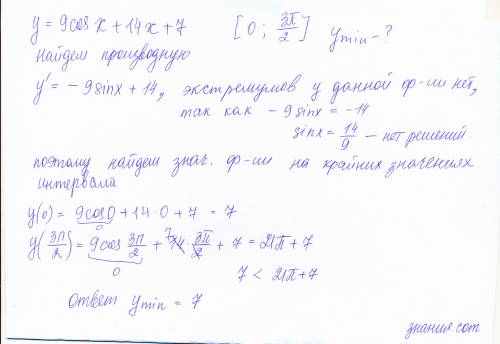 y = 9cos x + 14x + 7   [0 ; 3π/2]   y min - ?
Найдем производную
y' = - 9 sinx + 14, экстремумов у данной ф-ии нет,
так как - 9 sinx = -14
sinx = 14/9 - нет решений.
поэтому найдем знач. ф-ии на крайних значениях
интервала
y(0) = 9cos0 + 14·0 + 7 = 7
0
y(3π/2) = 9cos 3π/2 + 7 14 · 3π/2 + 7 = 21π + 7
0
7 < 21π+7
Ответ y min = 7
знания.com